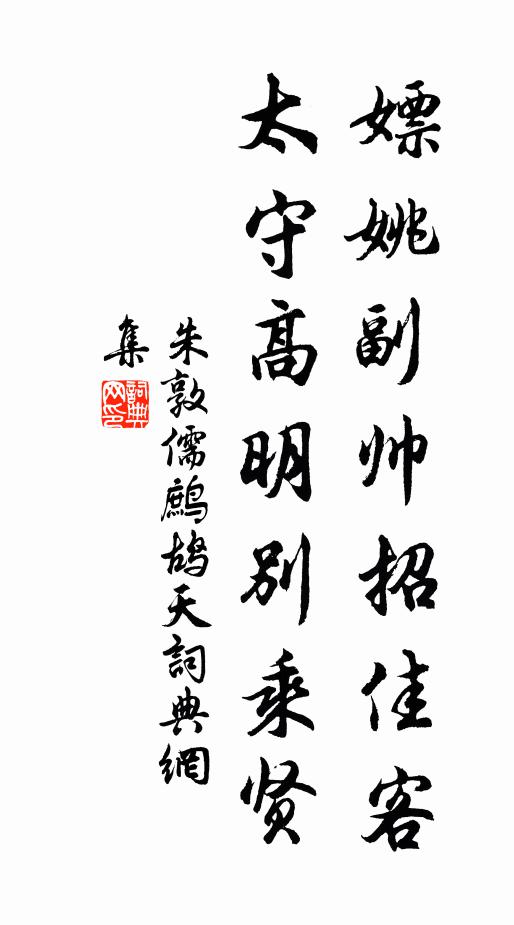 嫖姚副帅招佳客
太守高明别乘贤
朱敦儒鹧鸪天詞典網
集
詞典
网印